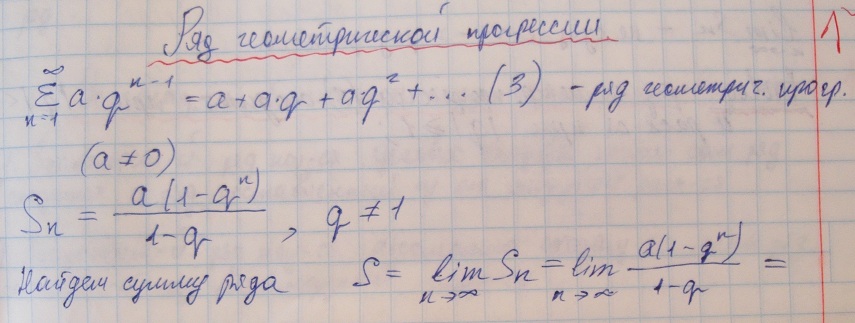 Ряд геометрической прогрессии
∞ Σ n=1 a·q^(n-1) = a + a·q + aq² + ... (3) - ряд геометрич. прогр.
(a ≠ 0)
Sn = a(1-q^n) / 1-q , q ≠ 1
Найдем сумму ряда S = lim n→∞ Sn = lim n→∞ a(1-q^n) / 1-q =